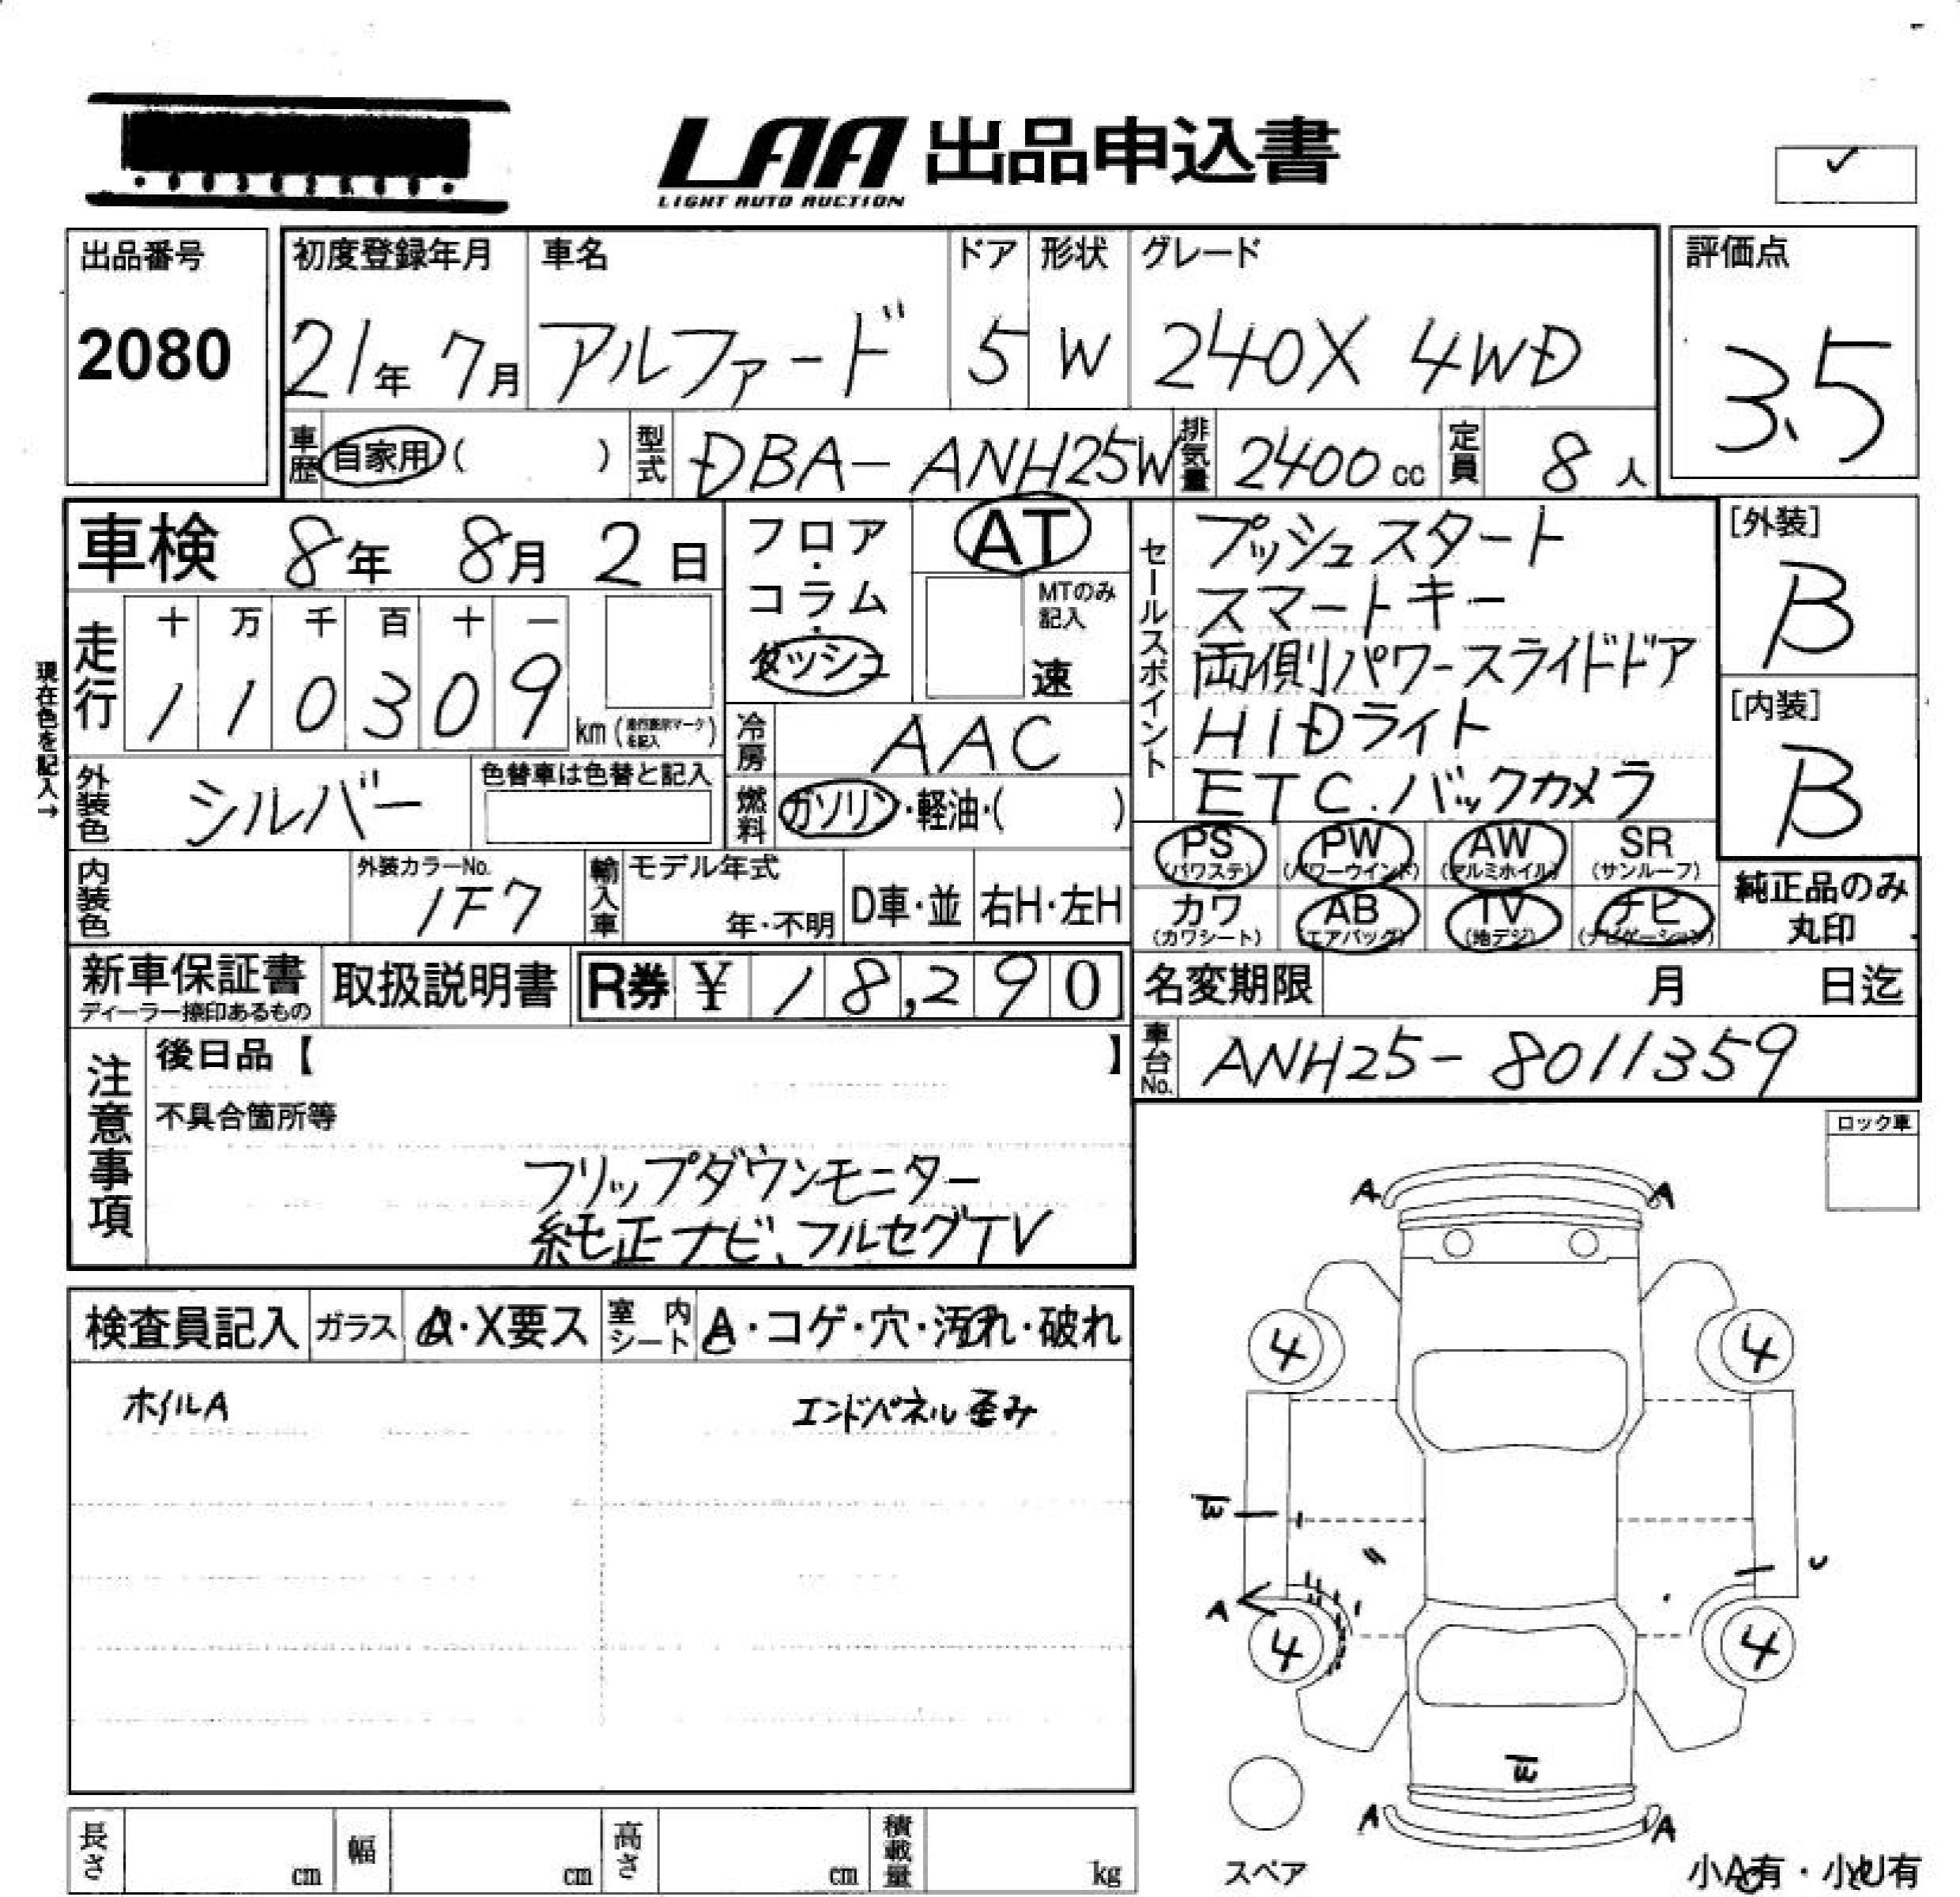 LAA 出品申込書
LIGHT AUTO AUCTION
✓
出品番号
2080
初度登録年月
21年 7月
車名
アルファード
ドア
5
形状
W
グレード
240X 4WD
評価点
3.5
車歴 自家用 ( )
型式 DBA-ANH25W
排気量 2400 cc
定員 8 人
車検 8年 8月 2日
フロア・コラム・ダッシュ
AT
MTのみ記入
速
セールスポイント
プッシュスタート
スマートキー
両側パワースライドドア
HIDライト
ETC.バックカメラ
[外装]
B
[内装]
B
現在色を記入→
走行
十 万 千 百 十 一
1 1 0 3 0 9 km
冷房 AAC
外装色 シルバー
色替車は色替と記入
燃料 ガソリン・軽油・( )
PS (パワステ)
PW (パワーウインド)
AW (アルミホイル)
SR (サンルーフ)
カワ (カワシート)
AB (エアバッグ)
TV (地デジ)
ナビ (ナビゲーション)
純正品のみ
丸印
内装色
外装カラーNo.
1F7
輸入車
モデル年式
年・不明
D車・並
右H・左H
新車保証書
ディーラー捺印あるもの
取扱説明書
R券 ¥ 18,290
名変期限 月 日迄
車台No. ANH25-8011359
注意事項
後日品【 】
不具合箇所等
フリップダウンモニター
純正ナビ、フルセグTV
ロック車
検査員記入
ガラス A・X要ス
室内シート A・コゲ・穴・汚れ・破れ
ホイルA
エンドパネル歪み
A A
4 4
A
4 4
A A
スペア
小A有・小U有
長さ cm
幅 cm
高さ cm
積載量 kg